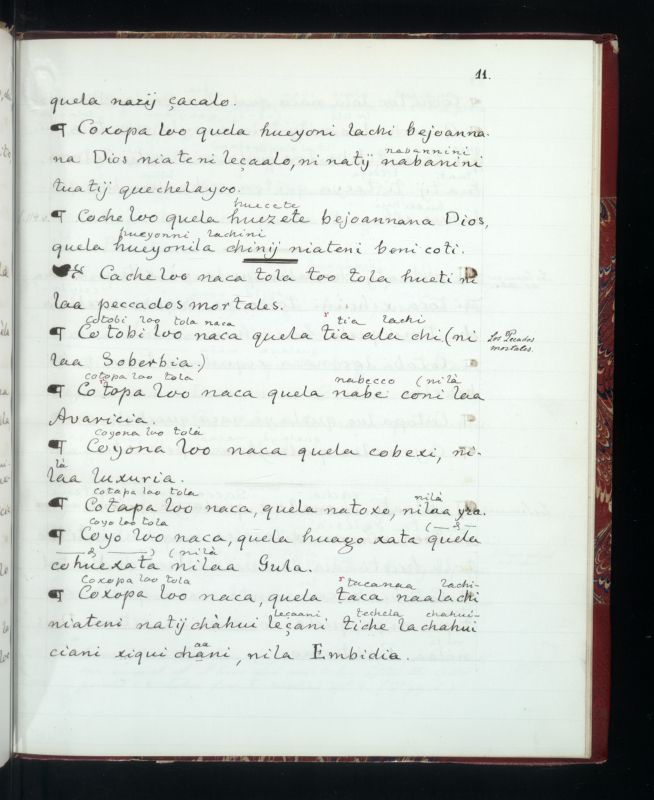 11.
quela nazij çacalo.
¶ Coxopa loo quela hueyoni lachi bejoanna-
nabannini
na Dios niateni leçaalo, ni natij nabanini
tuatij quechelayoo.
huecete
¶ Coche loo quela huezete bejoannana Dios,
hueyonni lachini
quela hueyonila chinij niateni beni coti.
Cache loo naca tola too tola hueti ni
laa peccados mortales.
cotobi loo tola naca tia lachi
¶ Cotobi loo naca quela tia ala chi (ni
Los Pecados
mortales.
laa Soberbia.)
cotopa loo tola nabecco (nilà
¶ Cotopa loo naca quela nabe coni laa
Avaricia.
Coyona loo tola
¶ Coyona loo naca quela cobexi, ni-
là
laa luxuria.
cotapa loo tola nilà
¶ Cotapa loo naca, quela natoxo, nilaa yra.
Coyo loo tola
¶ Coyo loo naca, quela huago xata quela
(nilà
cohuexata nilaa Gula.
Coxopa loo tola tacanaa lachi-
¶ Coxopa loo naca, quela taca naalachi
leçaani techela chahui-
niateni natij chàhui leçani tiche lachahui
aa
ciani xiqui chani, nila Embidia.